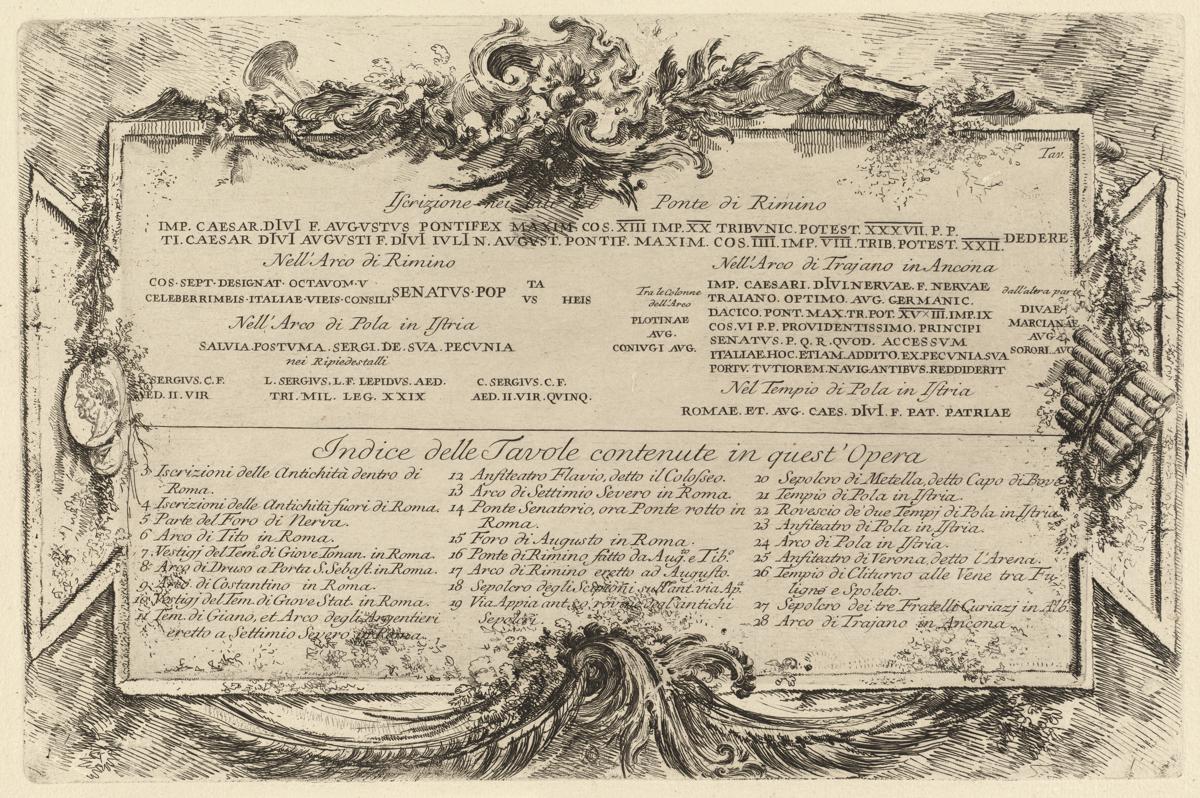 Tav.
Iscrizione nei del Ponte di Rimino
IMP. CAESAR. DIVI F. AVGVSTVS PONTIFEX MAXIM. COS. XIII IMP. XX TRIBVNIC. POTEST. XXXVII. P. P.
TI. CAESAR DIVI AVGVSTI F. DIVI IVLI N. AVGVST. PONTIF. MAXIM. COS. IIII. IMP. VIII. TRIB. POTEST. XXII. DEDERE
Nell'Arco di Rimino
COS·SEPT·DESIGNAT·OCTAVOM·V
CELEBERRIMEIS·ITALIAE·VIEIS·CONSILI SENATVS·POP
TA
VS HEIS
Nell'Arco di Pola in Istria
SALVIA. POSTVMA. SERGI. DE. SVA. PECVNIA
nei Ripiedestalli
L. SERGIVS. C. F.
AED. II. VIR
L. SERGIVS. L. F. LEPIDVS. AED.
TRI. MIL. LEG. XXIX
C. SERGIVS. C. F.
AED. II. VIR. QVINQ.
Nell'Arco di Trajano in Ancona
Tra le Colonne
dell'Arco
PLOTINAE
AVG.
CONIVGI AVG.
IMP. CAESARI. DIVI. NERVAE. F. NERVAE
TRAIANO. OPTIMO. AVG. GERMANIC.
DACICO. PONT. MAX. TR. POT. XVIIII. IMP. IX
COS. VI P. P. PROVIDENTISSIMO. PRINCIPI
SENATVS. P. Q. R. QVOD. ACCESSVM
ITALIAE. HOC. ETIAM. ADDITO. EX. PECVNIA. SVA
PORTV. TVTIOREM. NAVIGANTIBVS. REDDIDERIT
dall'altra parte
DIVAE
MARCIANAE
AVG.
SORORI. AVG
Nel Tempio di Pola in Istria
ROMAE. ET. AVG. CAES. DIVI. F. PAT. PATRIAE
Indice delle Tavole contenute in quest' Opera
3 Iscrizioni delle Antichità dentro di
Roma.
4 Iscrizioni delle Antichità fuori di Roma.
5 Parte del Foro di Nerva.
6 Arco di Tito in Roma.
7 Vestigj del Tem.º di Giove Tonan. in Roma.
8 Arco di Druso a Porta S. Sebast. in Roma.
9 Arco di Costantino in Roma.
10 Vestigj del Tem. di Giove Stat. in Roma.
11 Tem. di Giano, et Arco degli Argentieri
eretto a Settimio Severo in Roma.
12 Anfiteatro Flavio, detto il Colosseo.
13 Arco di Settimio Severo in Roma.
14 Ponte Senatorio, ora Ponte rotto in
Roma.
15 Foro di Augusto in Roma.
16 Ponte di Rimino fatto da Aug.º e Tib.º
17 Arco di Rimino eretto ad Augusto.
18 Sepolcro degli Scipioni sull'ant. via Ap.ª
19 Via Appia ant. so, rovine degl'antichi
Sepolcri
20 Sepolcro di Metella, detto Capo di Bove.
21 Tempio di Pola in Istria.
22 Rovescio de due Tempj di Pola in Istria.
23 Anfiteatro di Pola in Istria.
24 Arco di Pola in Istria.
25 Anfiteatro di Verona, detto l'Arena.
26 Tempio di Cliturno alle Vene tra Fu
ligno e Spoleto.
27 Sepolcro dei tre Fratelli Curiazj in Alb.
28 Arco di Trajano in Ancona